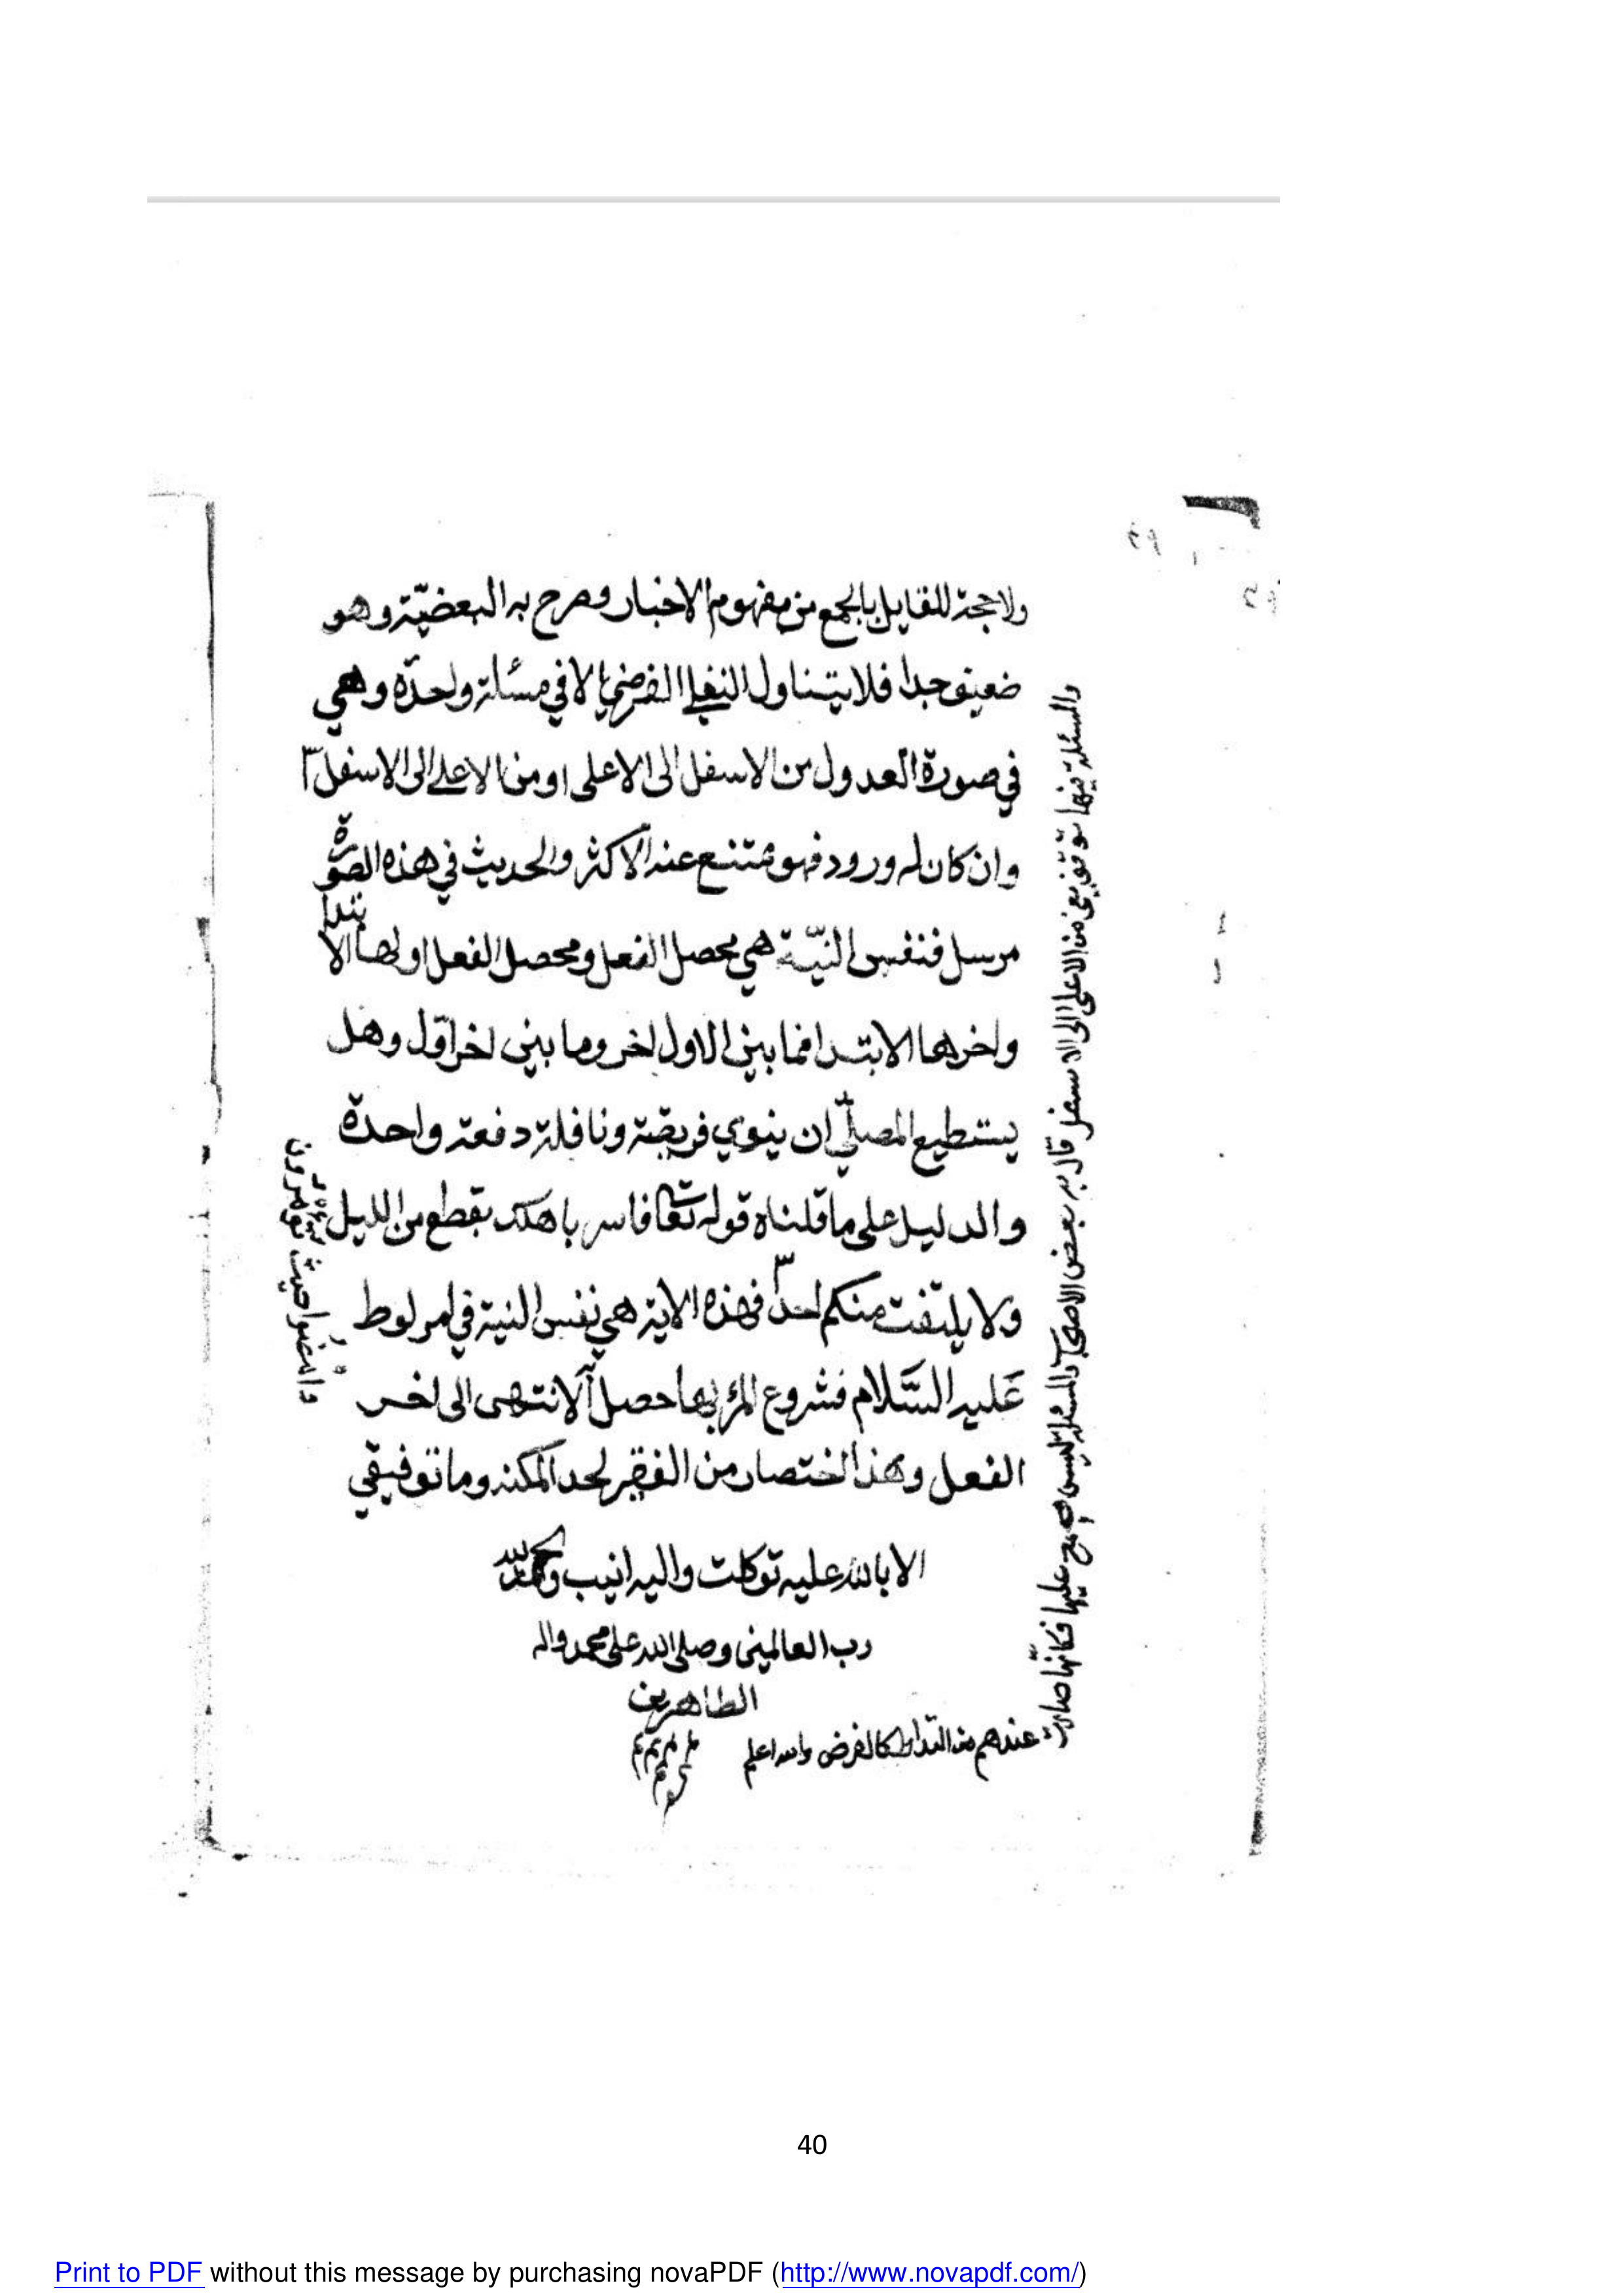 ولا حجة للقايل بالجمع من مفهوم الاخبار وصرح به البعضيّة وهو
ضعيف جدا فلا يتناول النفلي الفرضي الا في مسئلة واحدة وهي
في صورة العدول من الاسفل الى الاعلى او من الاعلى الى الاسفل
وان كان له ورود فهو ممتنع عند الاكثر والحديث في هذه الصورة
مرسل فنفس النيّة هي محصل الفعل ومحصل الفعل اولها الابتدا
واخرها الابتدا فما بين الاول اخر وما بين اخر اوّل وهل
يستطيع المصلّي ان ينوي فريضة ونافلة دفعة واحدة
والدليل على ما قلناه قوله تعا فاسر باهلك بقطع من الليل
ولا يلتفت منكم احد فهذه الاية هي نفس النية في امر لوط
عَليه السَّلام فشروع المرء بها حصل الانتهى الى اخر
الفعل وهذا اختصار من الفقير لحد المكنه وما توفيقي
الا بالله عليه توكلت واليه انيب والحمد لله
رب العالمين وصلى الله على محمد واله
الطاهرين
وامضوا حيث تؤمرون
والمسئلة فيها توقف يعني من الاعلى الى الاسفل قال به بعض الاصحاب والمسئلة ليس مجمع عليها فكانّها صارت
عندهم من كالفرض والله اعلم
40
Print to PDF without this message by purchasing novaPDF (http://www.novapdf.com/)